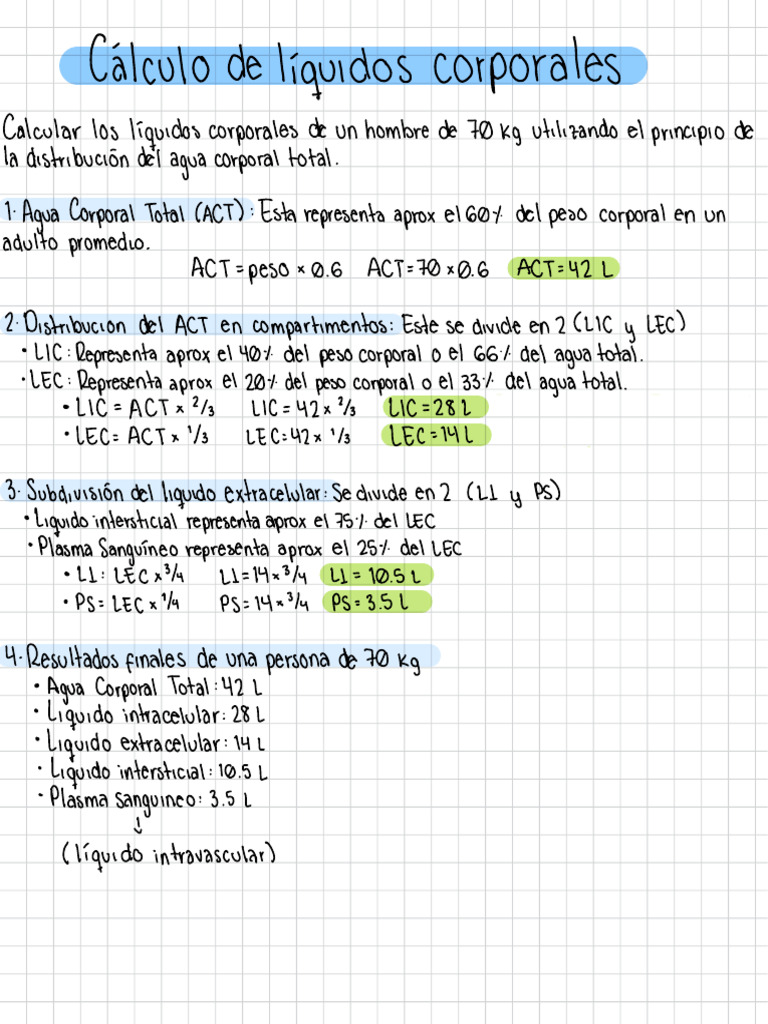 Cálculo de líquidos corporales
Calcular los líquidos corporales de un hombre de 70 kg utilizando el principio de
la distribución del agua corporal total.
1. Agua Corporal Total (ACT): Esta representa aprox el 60% del peso corporal en un
adulto promedio.
ACT = peso × 0.6 ACT = 70 × 0.6 ACT = 42 L
2. Distribucion del ACT en compartimentos: Este se divide en 2 (LIC y LEC)
• LIC: Representa aprox el 40% del peso corporal o el 66% del agua total.
• LEC: Representa aprox el 20% del peso corporal o el 33% del agua total.
• LIC = ACT × 2/3 LIC = 42 × 2/3 LIC = 28 L
• LEC = ACT × 1/3 LEC = 42 × 1/3 LEC = 14 L
3. Subdivisión del liquido extracelular: Se divide en 2 (LI y PS)
• Liquido intersticial representa aprox el 75% del LEC
• Plasma Sanguíneo representa aprox el 25% del LEC
• LI: LEC × 3/4 LI = 14 × 3/4 LI = 10.5 L
• PS = LEC × 1/4 PS = 14 × 3/4 PS = 3.5 L
4. Resultados finales de una persona de 70 kg
• Agua Corporal Total: 42 L
• Liquido intracelular: 28 L
• Liquido extracelular: 14 L
• Liquido intersticial: 10.5 L
• Plasma sanguineo: 3.5 L
↓
(líquido intravascular)